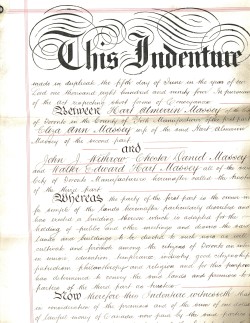 This Indenture
made in duplicate the fifth day of June in the year of our
Lord one thousand eight hundred and ninety four In pursuance
of the Act respecting short forms of Conveyances
Between Hart Almerrin Massey of the
of Toronto in the County of York Manufacturer of the first part
Eliza Ann Massey wife of the said Hart Almerrin
Massey of the second part
and
John J Withrow Chester Daniel Massey
and Walter Edward Hart Massey all of the
City of Toronto Manufacturers hereinafter called the
of the third part
Whereas the party of the first part is the owner in
fee simple of the lands hereinafter particularly described and
has erected a building thereon which is adapted for the
holding of public and other meetings and desires the said
lands and buildings to be devoted to such uses as will
cultivate and promote among the citizens of Toronto an interest
in music education temperance industry good citizenship
patriotism philanthropy and religion and for this purpose
has determined to convey the said lands and premises to the
parties of the third part as trustees
Now therefore this Indenture witnesseth that
in consideration of the premises and of the sum of one dollar
of lawful money of Canada now paid by the said parties